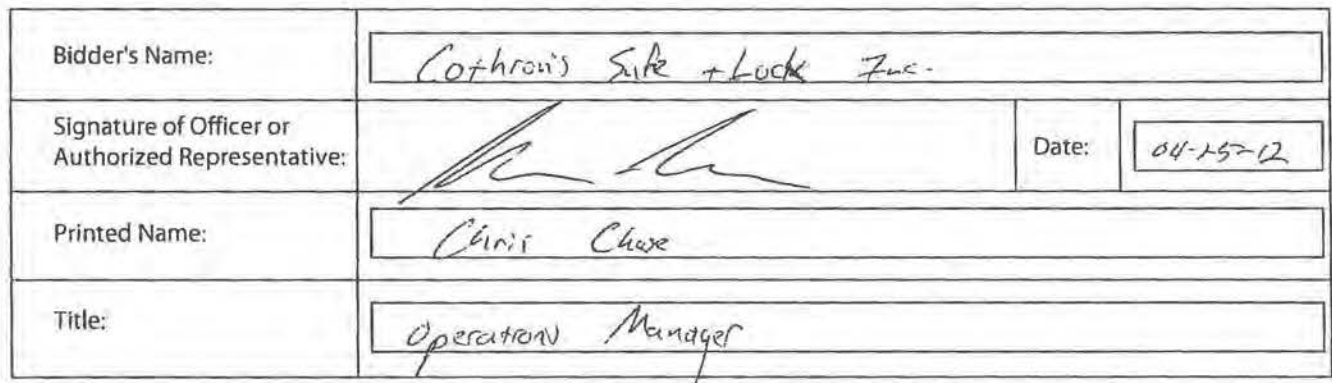 Bidder's Name: Cothron's Safe + Lock Inc.
Signature of Officer or
Authorized Representative:
Date: 04-25-12
Printed Name: Chris Chase
Title: Operations Manager